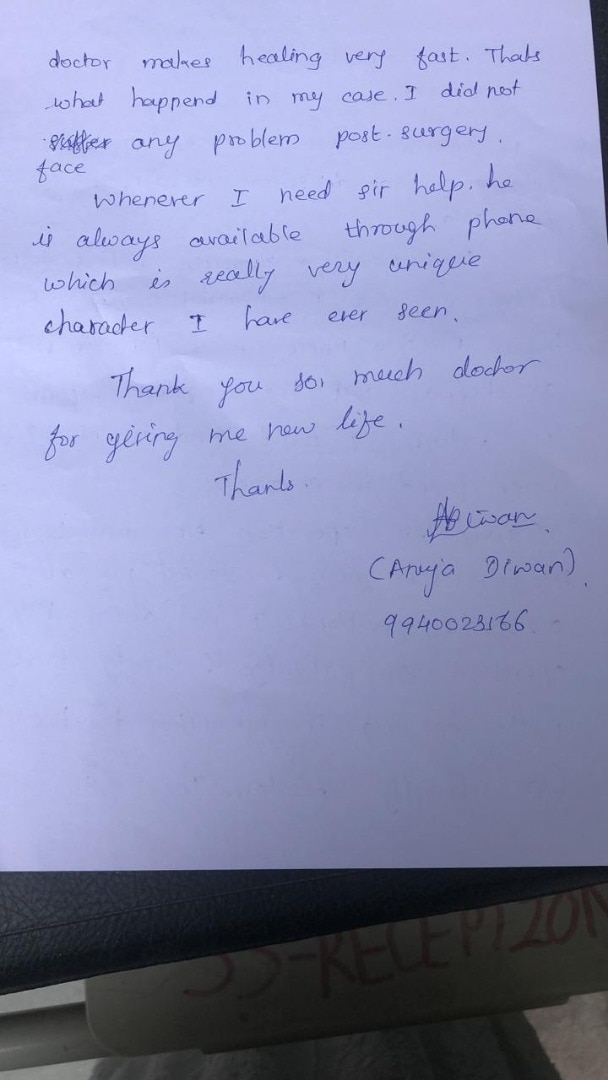 doctor makes healing very fast. Thats
what happend in my case. I did not
suffer any problem post-surgery.
face
Whenever I need sir help. he
is always available through phone
which is really very unique
character I have ever seen.
Thank you so, much doctor
for giving me new life.
Thanks.
Diwan.
(Anuja Diwan).
9940023166
-RECEPTION